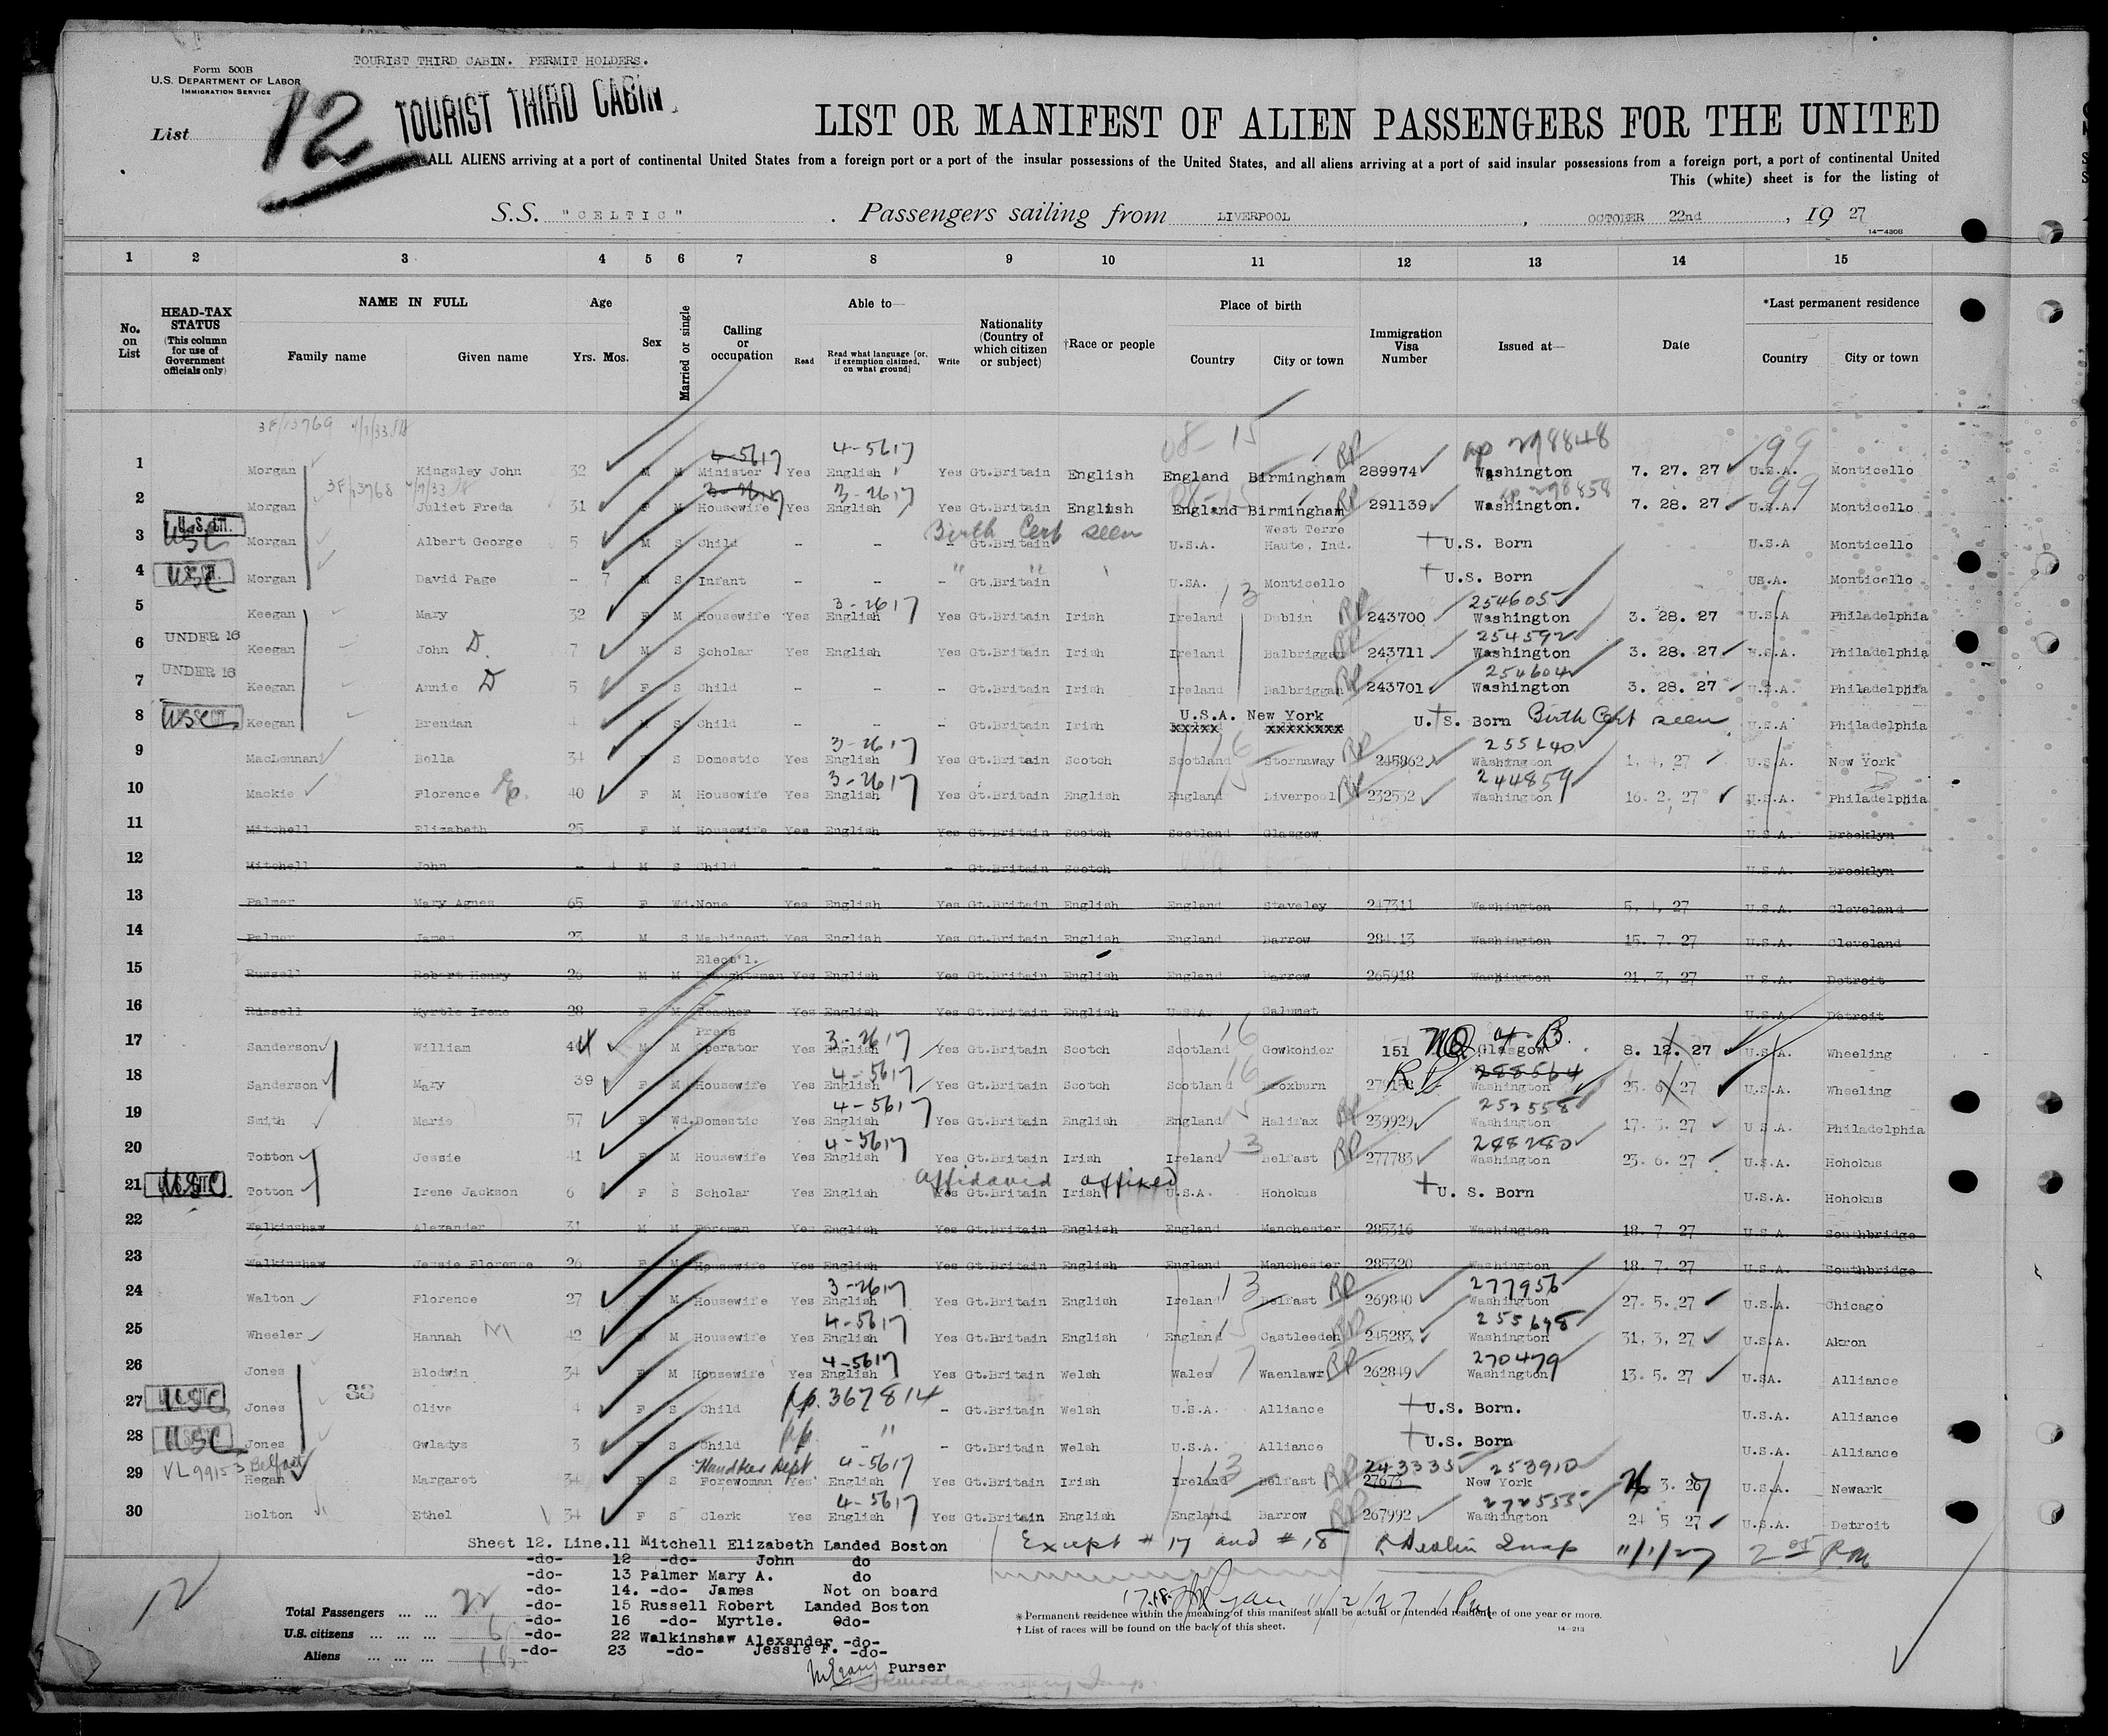 TOURIST THIRD CABIN. PERMIT HOLDERS.
Form 500B
U.S. DEPARTMENT OF LABOR
IMMIGRATION SERVICE
List 12
TOURIST THIRD CABIN
LIST OR MANIFEST OF ALIEN PASSENGERS FOR THE UNITED
ALL ALIENS arriving at a port of continental United States from a foreign port or a port of the insular possessions of the United States, and all aliens arriving at a port of said insular possessions from a foreign port, a port of continental United
This (white) sheet is for the listing of
S.S. "CELTIC" . Passengers sailing from LIVERPOOL , OCTOBER 22nd , 19 27
14-430B
1 2 3 4 5 6 7 8 9 10 11 12 13 14 15
No. on List HEAD-TAX STATUS (This column for use of Government officials only) NAME IN FULL Family name Given name Age Yrs. Mos. Sex Married or single Calling or occupation Able to— Read Read what language [or, if exemption claimed, on what ground] Write Nationality (Country of which citizen or subject) †Race or people Place of birth Country City or town Immigration Visa Number Issued at— Date *Last permanent residence Country City or town
3F/13769 4/7/33 08-15
4-5617 4-5617 RP 298848 99
1 Morgan Kingsley John 32 M M Minister Yes English Yes Gt.Britain English England Birmingham 289974 Washington 7. 27. 27 U.S.A. Monticello
3F/13768 3-2617 3-2617 RP 298858 99
2 Morgan Juliet Freda 31 F M Housewife Yes English Yes Gt.Britain English England Birmingham 291139 Washington. 7. 28. 27 U.S.A. Monticello
USC Birth Cert seen West Terre
3 Morgan Albert George 5 M S Child - - - Gt.Britain U.S.A. Haute, Ind. U.S. Born U.S.A Monticello
4 USC Morgan David Page - 7 M S Infant - - - Gt.Britain U.SA. Monticello U.S. Born US.A. Monticello
3-2617 13 RP 254605
5 Keegan Mary 32 F M Housewife Yes English Yes Gt.Britain Irish Ireland Dublin 243700 Washington 3. 28. 27 U.S.A Philadelphia
UNDER 16 RP 254592
6 Keegan John D. 7 M S Scholar Yes English Yes Gt.Britain Irish Ireland Balbriggan 243711 Washington 3. 28. 27 U.S.A. Philadelphia
UNDER 16 RP 254604
7 Keegan Annie D 5 F S Child - - - Gt.Britain Irish Ireland Balbriggan 243701 Washington 3. 28. 27 U.S.A. Philadelphia
U.S.A. New York
8 USC Keegan Brendan 4 M S Child - - - Gt.Britain Irish xxxxx xxxxxxxx U.S. Born Birth Cert seen U.S.A Philadelphia
3-2617 16 RP 255640
9 MacLennan Bella 34 F S Domestic Yes English Yes Gt.Britain Scotch Scotland Stornaway 245862 Washington 1, 4, 27 U.S.A. New York
3-2617 15 RP 244859
10 Mackie Florence 40 F M Housewife Yes English Yes Gt.Britain English England Liverpool 232552 Washington 16. 2. 27 U.S.A. Philadelphia
11 Mitchell Elizabeth 25 F M Housewife Yes English Yes Gt.Britain Scotch Scotland Glasgow U.S.A. Brooklyn
12 Mitchell John - 4 M S Child - - - Gt.Britain Scotch U.S.A. Brooklyn
13 Palmer Mary Agnes 65 F Wd. None Yes English Yes Gt.Britain English England Staveley 247311 Washington 5. 4. 27 U.S.A. Cleveland
14 Palmer James 23 M S Machinest Yes English Yes Gt.Britain English England Barrow 284.13 Washington 15. 7. 27 U.S.A. Cleveland
Elect'l.
15 Russell Robert Henry 26 M M Draughtsman Yes English Yes Gt.Britain English England Barrow 265918 Washington 21. 3. 27 U.S.A. Detroit
16 Russell Myrtle Irene 28 F M Teacher Yes English Yes Gt.Britain English U.S.A. Calumet U.S.A. Detroit
Press 3-2617 16 NQ 4-B.
17 Sanderson William 44 M M Operator Yes English Yes Gt.Britain Scotch Scotland Gowkohier 151 Glasgow 8. 12. 27 U.S.A. Wheeling
4-5617 16 RP 288564
18 Sanderson Mary 39 F M Housewife Yes English Yes Gt.Britain Scotch Scotland Broxburn Washington 25. 6. 27 U.S.A. Wheeling
4-5617 15 RP 252558
19 Smith Marie 57 F Wd. Domestic Yes English Yes Gt.Britain English England Halifax 239929 Washington 17. 3. 27 U.S.A. Philadelphia
4-5617 13 RP 288280
20 Totton Jessie 41 F M Housewife Yes English Yes Gt.Britain Irish Ireland Belfast 277783 Washington 23. 6. 27 U.S.A. Hohokus
affidavid affixed
21 USC Totton Irene Jackson 6 F S Scholar Yes English Yes Gt.Britain Irish U.S.A. Hohokus U. S. Born U.S.A. Hohokus
22 Walkinshaw Alexander 31 M M Foreman Yes English Yes Gt.Britain English England Manchester 285316 Washington 18. 7. 27 U.S.A. Southbridge
23 Walkinshaw Jessie Florence 26 F M Housewife Yes English Yes Gt.Britain English England Manchester 285320 Washington 18. 7. 27 U.S.A. Southbridge
3-2617 13 RP 277956
24 Walton Florence 27 F M Housewife Yes English Yes Gt.Britain English Ireland Belfast 269840 Washington 27. 5. 27 U.S.A. Chicago
4-5617 15 RP 255698
25 Wheeler Hannah M 42 F M Housewife Yes English Yes Gt.Britain English England Castleeden 245283 Washington 31, 3, 27 U.S.A. Akron
4-5617 17 RP 270479
26 Jones Blodwin 34 F M Housewife Yes English Yes Gt.Britain Welsh Wales Waenlawr 262849 Washington 13. 5. 27 U.SA. Alliance
33 pp. 367814
27 USC Jones Olive 4 F S Child - Gt.Britain Welsh U.S.A. Alliance U.S. Born. U.S.A. Alliance
28 USC Jones Gwladys 3 F S Child pp. " - Gt.Britain Welsh U.S.A. Alliance U.S. Born U.S.A. Alliance
VL 99153 Belfast Handkes Dept 4-5617 13 RP 243335 253910
29 Regan Margaret 34 F S Forewoman Yes English Yes Gt.Britain Irish Ireland Belfast 27673 New York 3. 27 U.S.A. Newark
4-5617 RP 272535
30 Bolton Ethel 34 F S Clerk Yes English Yes Gt.Britain English England Barrow 267992 Washington 24 5 27 U.S.A. Detroit
Sheet 12. Line.11 Mitchell Elizabeth Landed Boston
Except # 17 and # 18 Insp 11/1/27 2 05 P.M
-do- 12 -do- John do
-do- 13 Palmer Mary A. do
-do- 14. -do- James Not on board
-do- 15 Russell Robert Landed Boston
-do- 16 -do- Myrtle. -do-
-do- 22 Walkinshaw Alexander -do-
-do- 23 -do- Jessie F. -do-
Purser
12
Total Passengers ... ... 22
U.S. citizens ... ... ... 6
Aliens ... ... ... 16
17.18. Ryan 11/2/27
* Permanent residence within the meaning of this manifest shall be actual or intended residence of one year or more.
† List of races will be found on the back of this sheet.
14-213